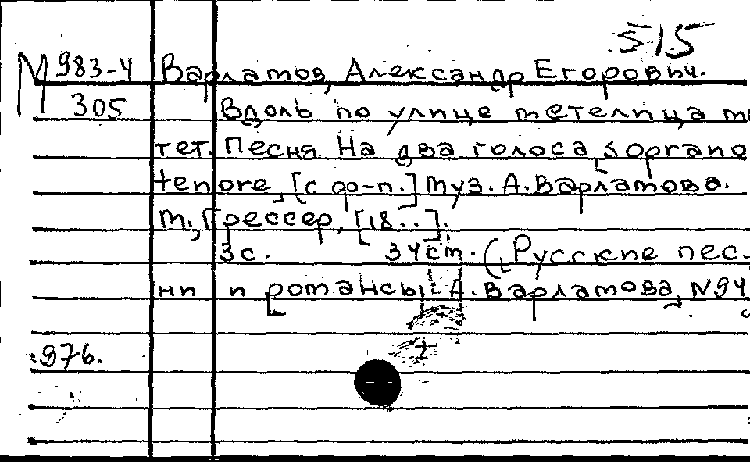 515
М 983-4 Варламов, Александр Егорович.
305 Вдоль по улице метелица м
тет. Песня. На два голоса, soprano
tenore, [с ф-п.] Муз. А. Варламова.
М., Грессер, [18..].
3с. 34см. (Русские пес.
ни и романсы А. Варламова, N94
976.